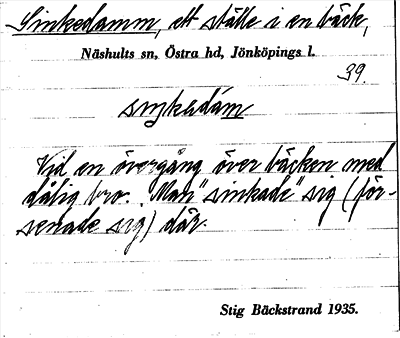 Sinkedamm, ett ställe i en bäck,
Näshults sn, Östra hd, Jönköpings l.
39.
siŋkədam
Vid en övergång över bäcken med
dålig bro. "Man "sinkade" sig (för-
senade sig) där.
Stig Bäckstrand 1935.